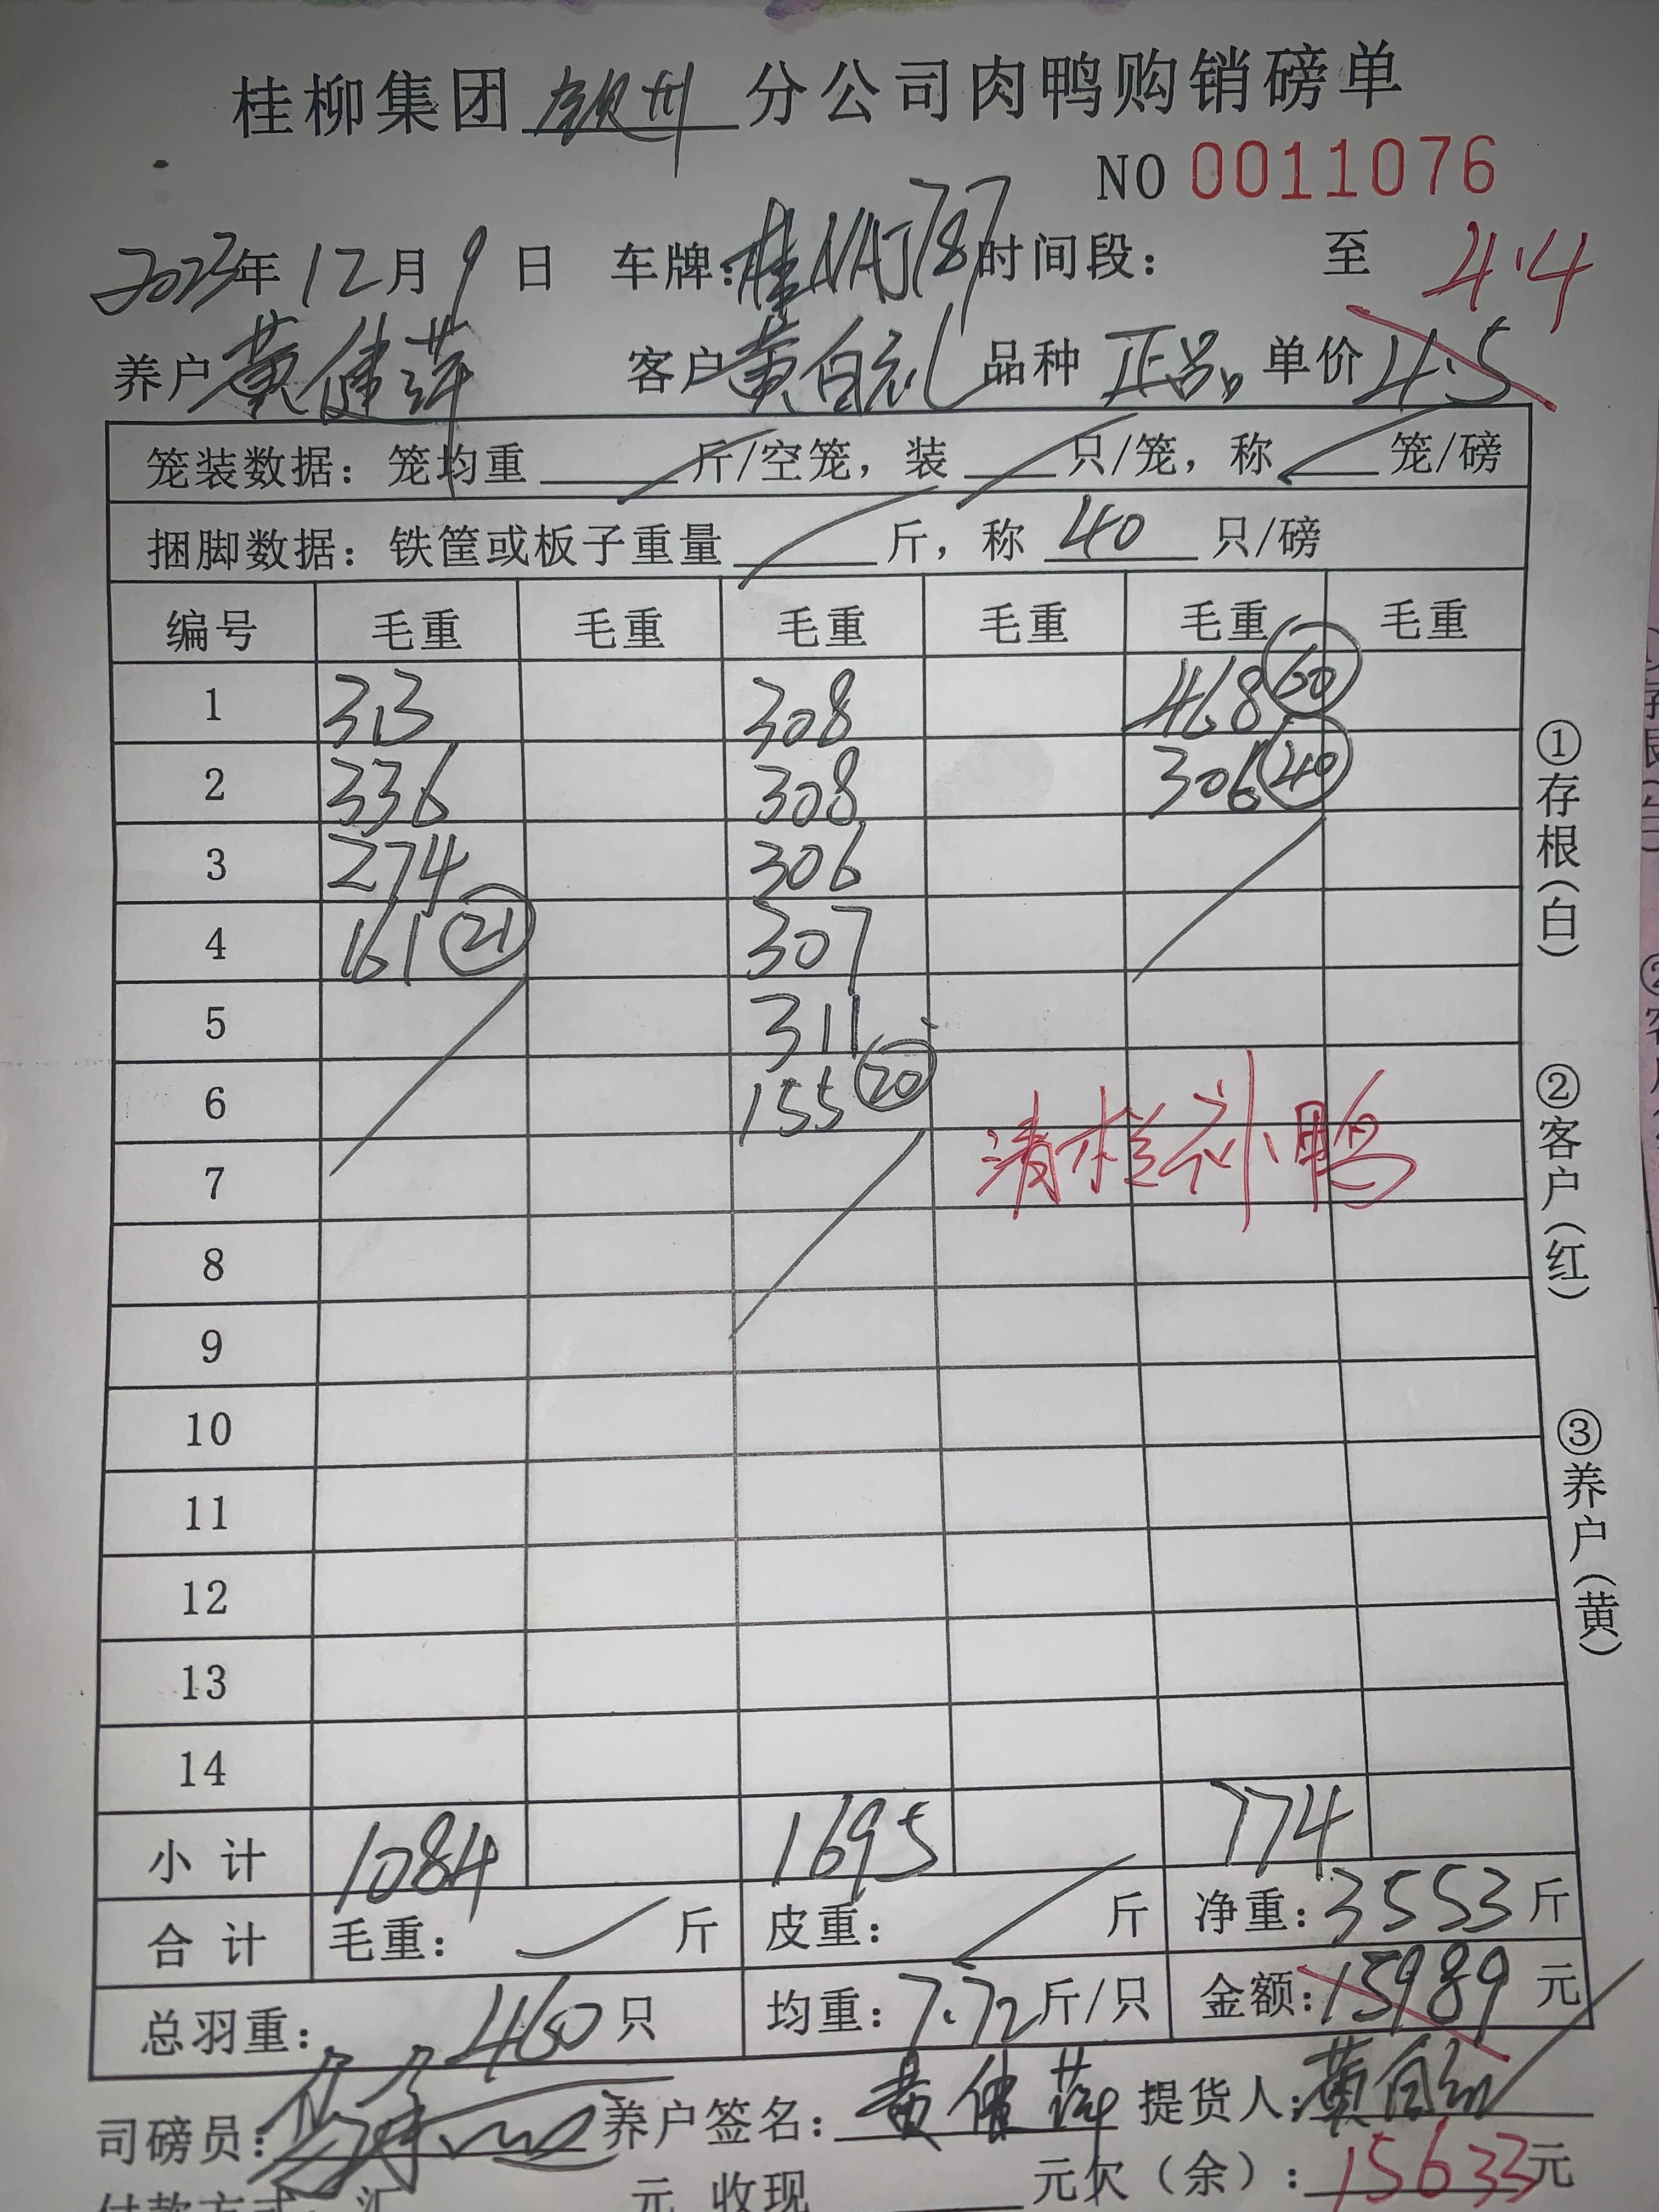 桂柳集团 钦州 分公司肉鸭购销磅单
NO 0011076
2023年 12月 9日 车牌:桂NAJ787 时间段: 至 4.4
养户 黄健萍 客户 黄自礼 品种 正品 单价 4.5
笼装数据: 笼均重 斤/空笼, 装 只/笼, 称 笼/磅
捆脚数据: 铁筐或板子重量 斤, 称 40 只/磅
编号 毛重 毛重 毛重 毛重 毛重 毛重
1 313 308 468 60
2 336 308 306 40
3 274 306
4 161 21 307
5 311
6 155 20
清栏补鸭
7
8
9
10
11
12
13
14
小计 1084 1695 774
合计 毛重: 斤 皮重: 斤 净重: 3553 斤
总羽重: 460 只 均重: 7.72 斤/只 金额: 15989 元
司磅员: 养户签名: 黄健萍 提货人: 黄自礼
付款方式: 汇 元 收现 元 欠(余): 15633 元
①存根(白)
②客户(红)
③养户(黄)